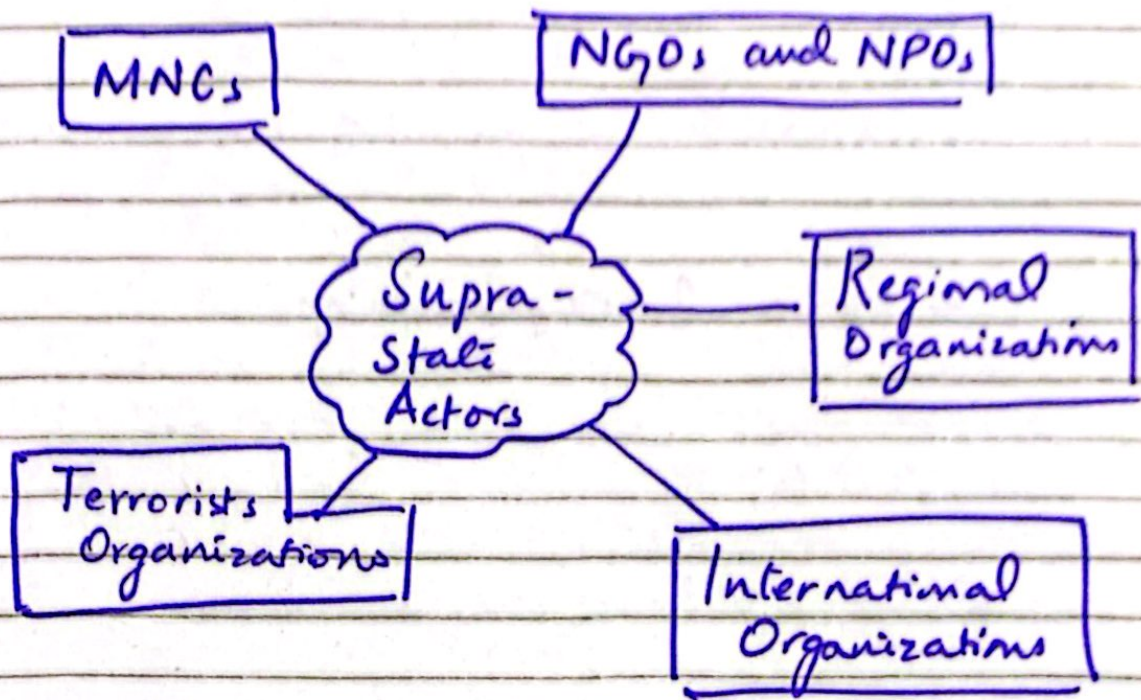 MNCs
NGOs and NPOs
Supra-
State
Actors
Regional
Organizations
Terrorists
Organizations
International
Organizations